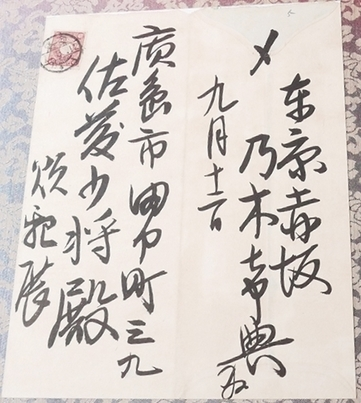 〆
東京赤坂
乃木希典
九月十二日
廣島市田中町三九
佐藤少将殿
煩親展